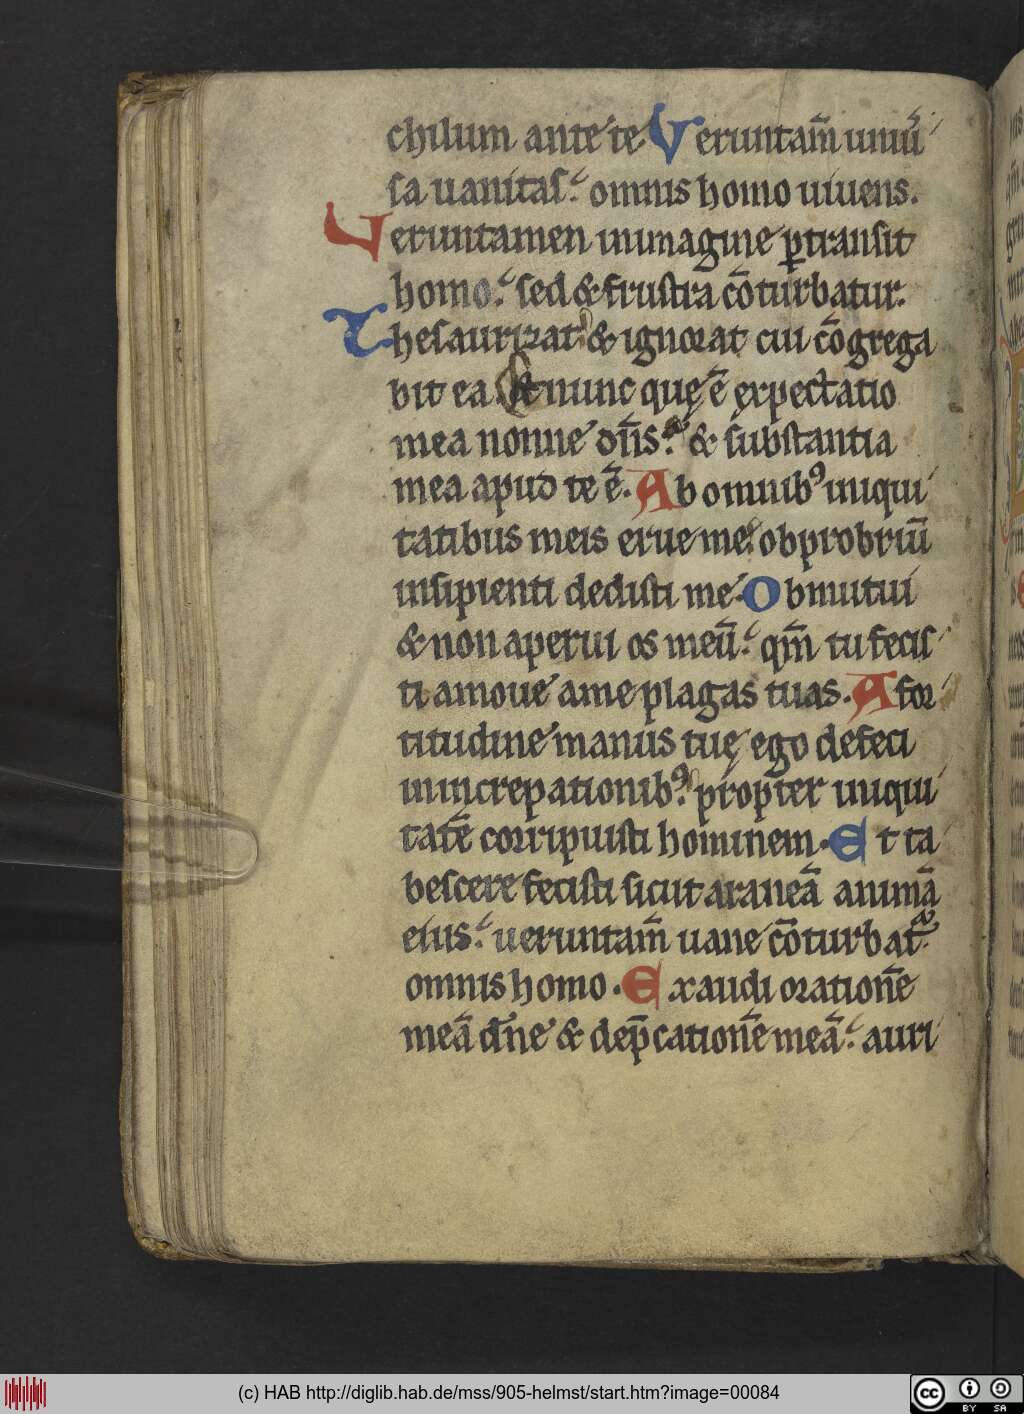 chilum ante te Veruntam̄ uniū
sa uanitas: omnis homo uiuens.
Veruntamen inimagine ꝑtransit
homo: sed & frustra cōturbatur.
Thesaurizat & ignorat cui cōgrega
bit ea Et nunc quę ē expectatio
mea nonne dn̄s: & substantia
mea apud te ē. Ab omnibꝰ iniqui
tatibus meis erue me: obprobriū
insipienti dedisti me. Obmutui
& non aperui os meū: qm̄ tu fecis
ti amoue ame plagas tuas. A for
titudine manus tuę ego defeci
inincrepationibꝰ: propter iniqui
tatē corripuisti hominem. Et ta
bescere fecisti sicut araneā animā
eius: ueruntam̄ uane cōturbat᷑
omnis homo. Exaudi orationē
meā dn̄e & dep̄cationē meā: auri
(c) HAB http://diglib.hab.de/mss/905-helmst/start.htm?image=00084
cc BY SA